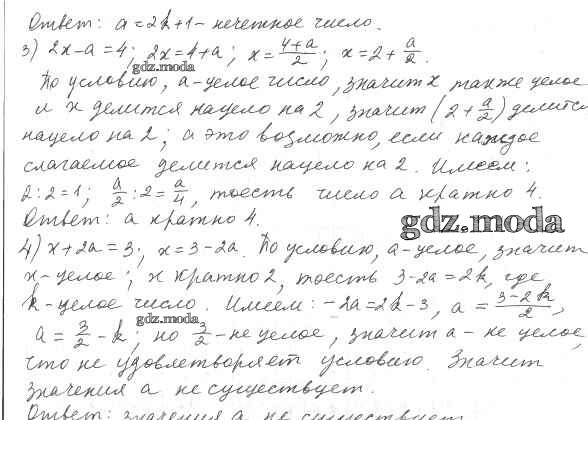 Ответ: a=2k+1 - нечетное число.
3) 2x-a=4; 2x=4+a; x=\frac{4+a}{2}; x=2+\frac{a}{2}.
gdz.moda
По условию, a-целое число, значит x также целое
и x делится нацело на 2, значит (2+\frac{a}{2}) делится
нацело на 2; а это возможно, если каждое
слагаемое делится нацело на 2. Имеем:
2:2=1; \frac{a}{2}:2=\frac{a}{4}, тоесть число a кратно 4.
Ответ: a кратно 4.
gdz.moda
4) x+2a=3; x=3-2a. По условию, a-целое, значит
x-целое; x кратно 2, тоесть 3-2a=2k, где
k-целое число. Имеем: -2a=2k-3, a=\frac{3-2k}{2},
gdz.moda
a=\frac{3}{2}-k; но \frac{3}{2}-не целое, значит a-не целое,
что не удовлетворяет условию. Значит
значения a не существует.
Ответ: значения a не существует